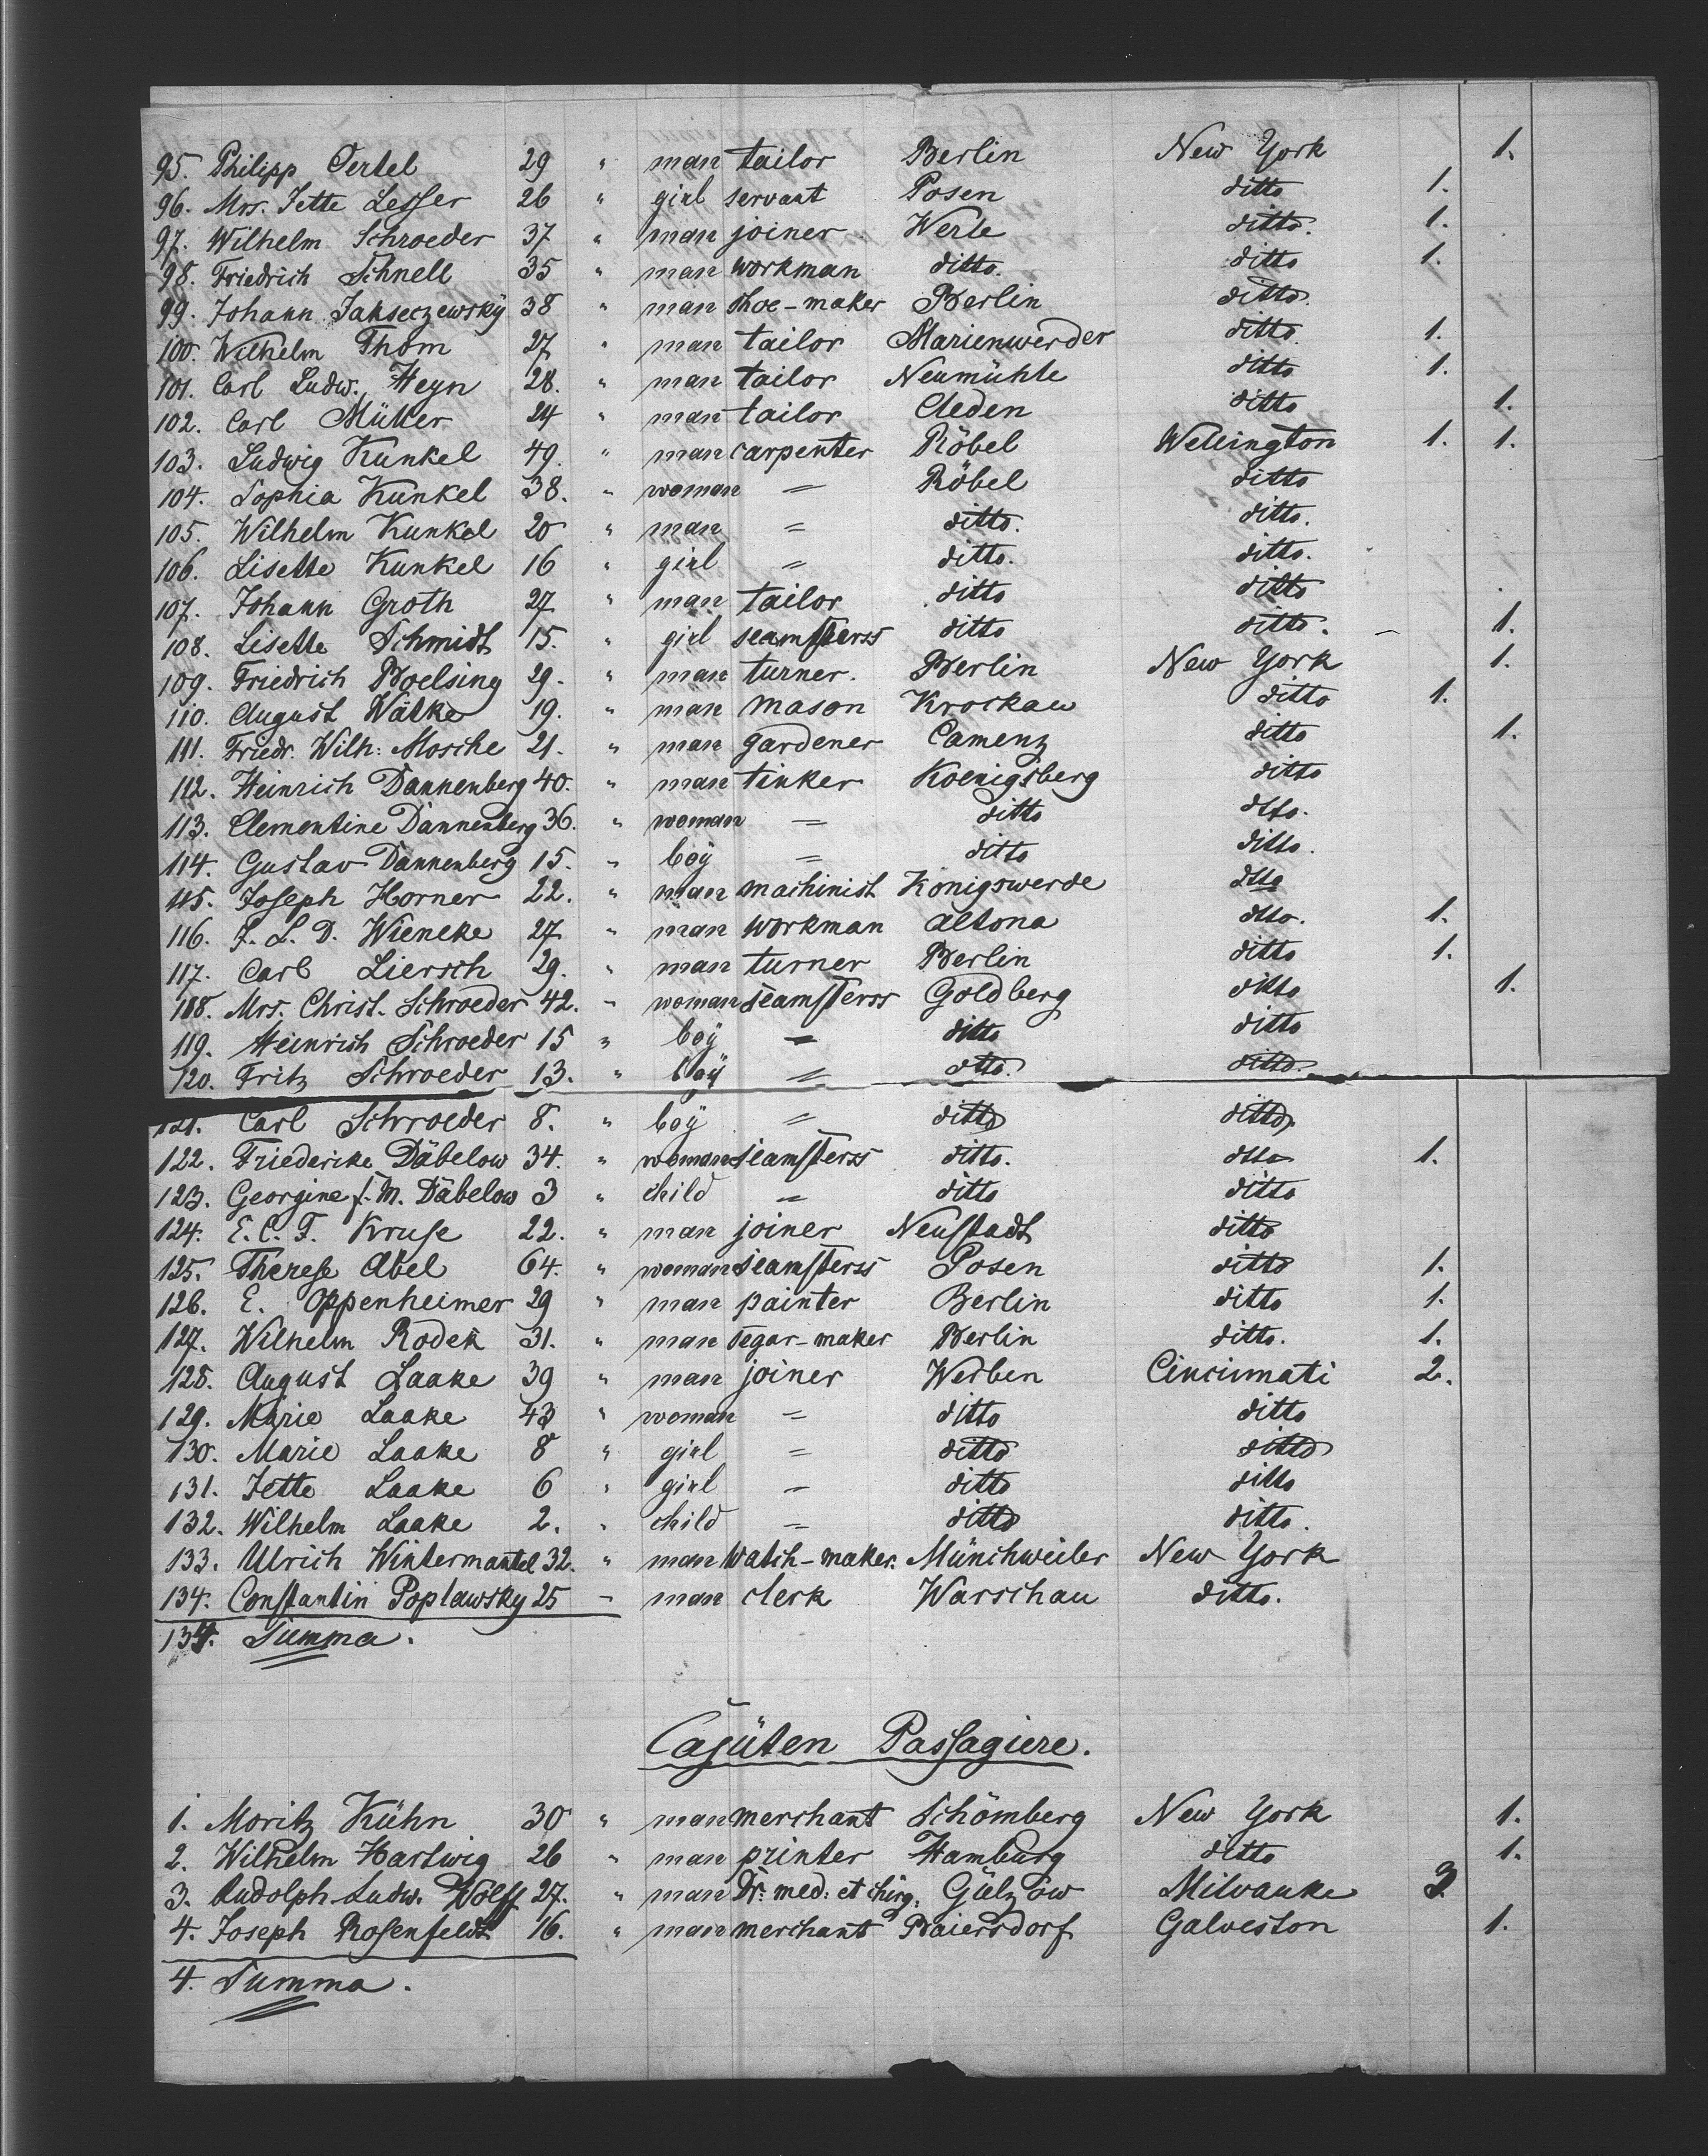 95. Philipp Oertel 29 " man tailor Berlin New York 1.
96. Mrs. Jette Lesser 26 " girl servant Posen ditto 1.
97. Wilhelm Schroeder 37 " man joiner Werle ditto. 1.
98. Friedrich Schnell 35 " man workman ditto. ditto 1.
99. Johann Jakseczewsky 38 " man shoe-maker Berlin ditto.
100. Wilhelm Thom 27 " man tailor Marienwerder ditto. 1.
101. Carl Ludw. Heyn 28. " man tailor Neumühle ditto 1.
102. Carl Müller 24 " man tailor Cleden ditto 1.
103. Ludwig Kunkel 49. " man carpenter Röbel Wellington 1. 1.
104. Sophia Kunkel 38. " woman = Röbel ditto
105. Wilhelm Kunkel 20 " man = ditto. ditto.
106. Lisette Kunkel 16 " girl = ditto. ditto.
107. Johann Groth 27 " man tailor ditto ditto
108. Lisette Schmidt 15. " girl seamsterss ditto ditto. – 1.
109. Friedrich Boelsing 29. " man turner. Berlin New York 1.
110. August Wätke 19. " man mason Krockau ditto 1.
111. Friedr. Wilh: Mosche 21. " man gardener Camenz ditto 1.
112. Heinrich Dannenberg 40. " man tinker Koenigsberg ditto
113. Clementine Dannenberg 36. " woman = ditto dtto.
114. Gustav Dannenberg 15. " boy = ditto ditto.
115. Joseph Horner 22. " man machinist Königswerde dtto
116. J. L. D. Wieneke 27 " man workman Altona dtto. 1.
117. Carl Liersch 29. " man turner Berlin ditto 1.
118. Mrs. Christ. Schroeder 42. " woman seamsterss Goldberg ditto 1.
119. Heinrich Schroeder 15 " boy = ditto ditto
120. Fritz Schroeder 13. " boy = dtto. ditto.
121. Carl Schroeder 8. " boy = ditto ditto.
122. Friederike Däbelow 34. " woman seamsterss ditto. dtto 1.
123. Georgine f. M. Däbelow 3 " child = ditto ditto
124. E. C. F. Kruse 22. " man joiner Neustadt ditto
125. Therese Abel 64. " woman seamsterss Posen ditto 1.
126. E. Oppenheimer 29 " man painter Berlin ditto 1.
127. Wilhelm Rodek 31. " man segar-maker Berlin ditto. 1.
128. August Laake 39 " man joiner Werben Cincinnati 2.
129. Marie Laake 43 " woman = ditto ditto
130. Marie Laake 8 " girl = ditto ditto
131. Jette Laake 6 " girl = ditto ditto
132. Wilhelm Laake 2. " child = ditto ditto.
133. Ulrich Wintermantel 32. " man watch-maker. Münchweiler New York
134. Constantin Poplawsky 25 – man clerk Warschau ditto.
134. Summa.
Cajüten Passagiere.
1. Moritz Kühn 30 " man merchant Schömberg New York 1.
2. Wilhelm Hartwig 26 " man printer Hamburg ditto 1.
3. Rudolph Ludw. Wolff 27. " man Dr. med: et chirg. Gülzow Milvauke 3
4. Joseph Rosenfeldt 16. " man merchant Baiersdorf Galveston 1.
4. Summa.